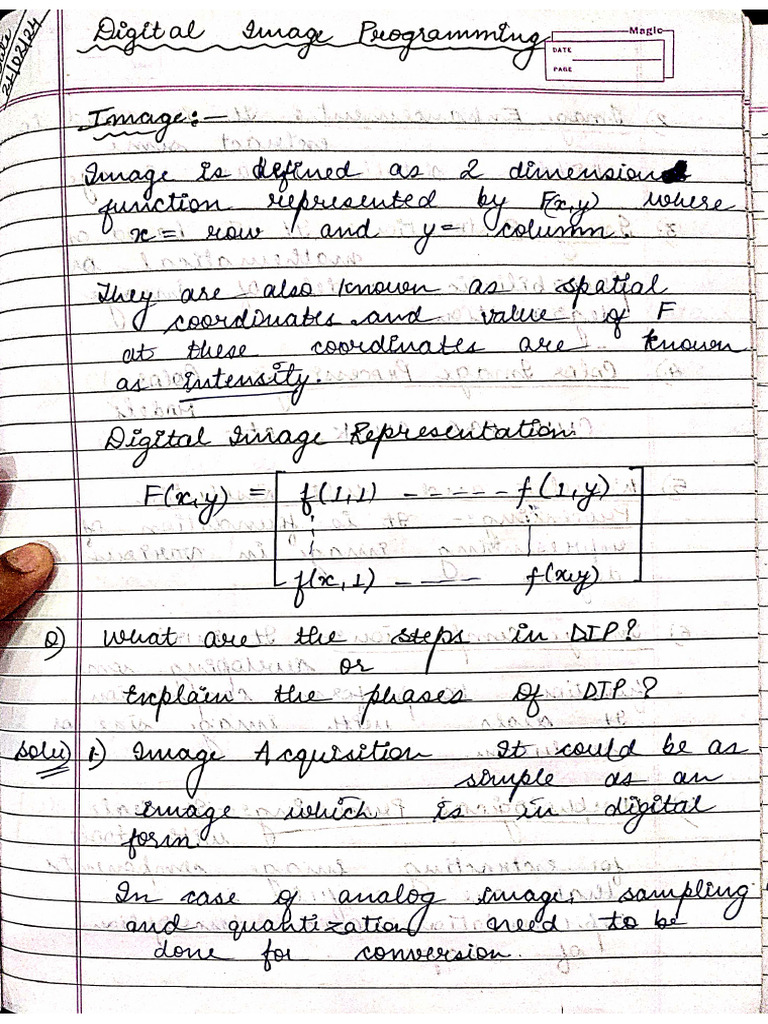 Date
21/02/24
Digital Image Programming
Magic
DATE
PAGE
Image:-
Image is defined as 2 dimension
function represented by F(x,y) where
x = row and y = column.
They are also known as spatial
coordinates and value of F
at these coordinates are known
as intensity.
Digital Image Representation
F(x,y) = [ f(1,1) ----- f(1,y)
f(x,1) ---- f(x,y) ]
Q) What are the steps in DIP?
or
Explain the phases of DIP?
Solu) 1.) Image Acquisition It could be as
simple as an
image which is in digital
form.
In case of analog image, sampling
and quantization need to be
done for conversion.